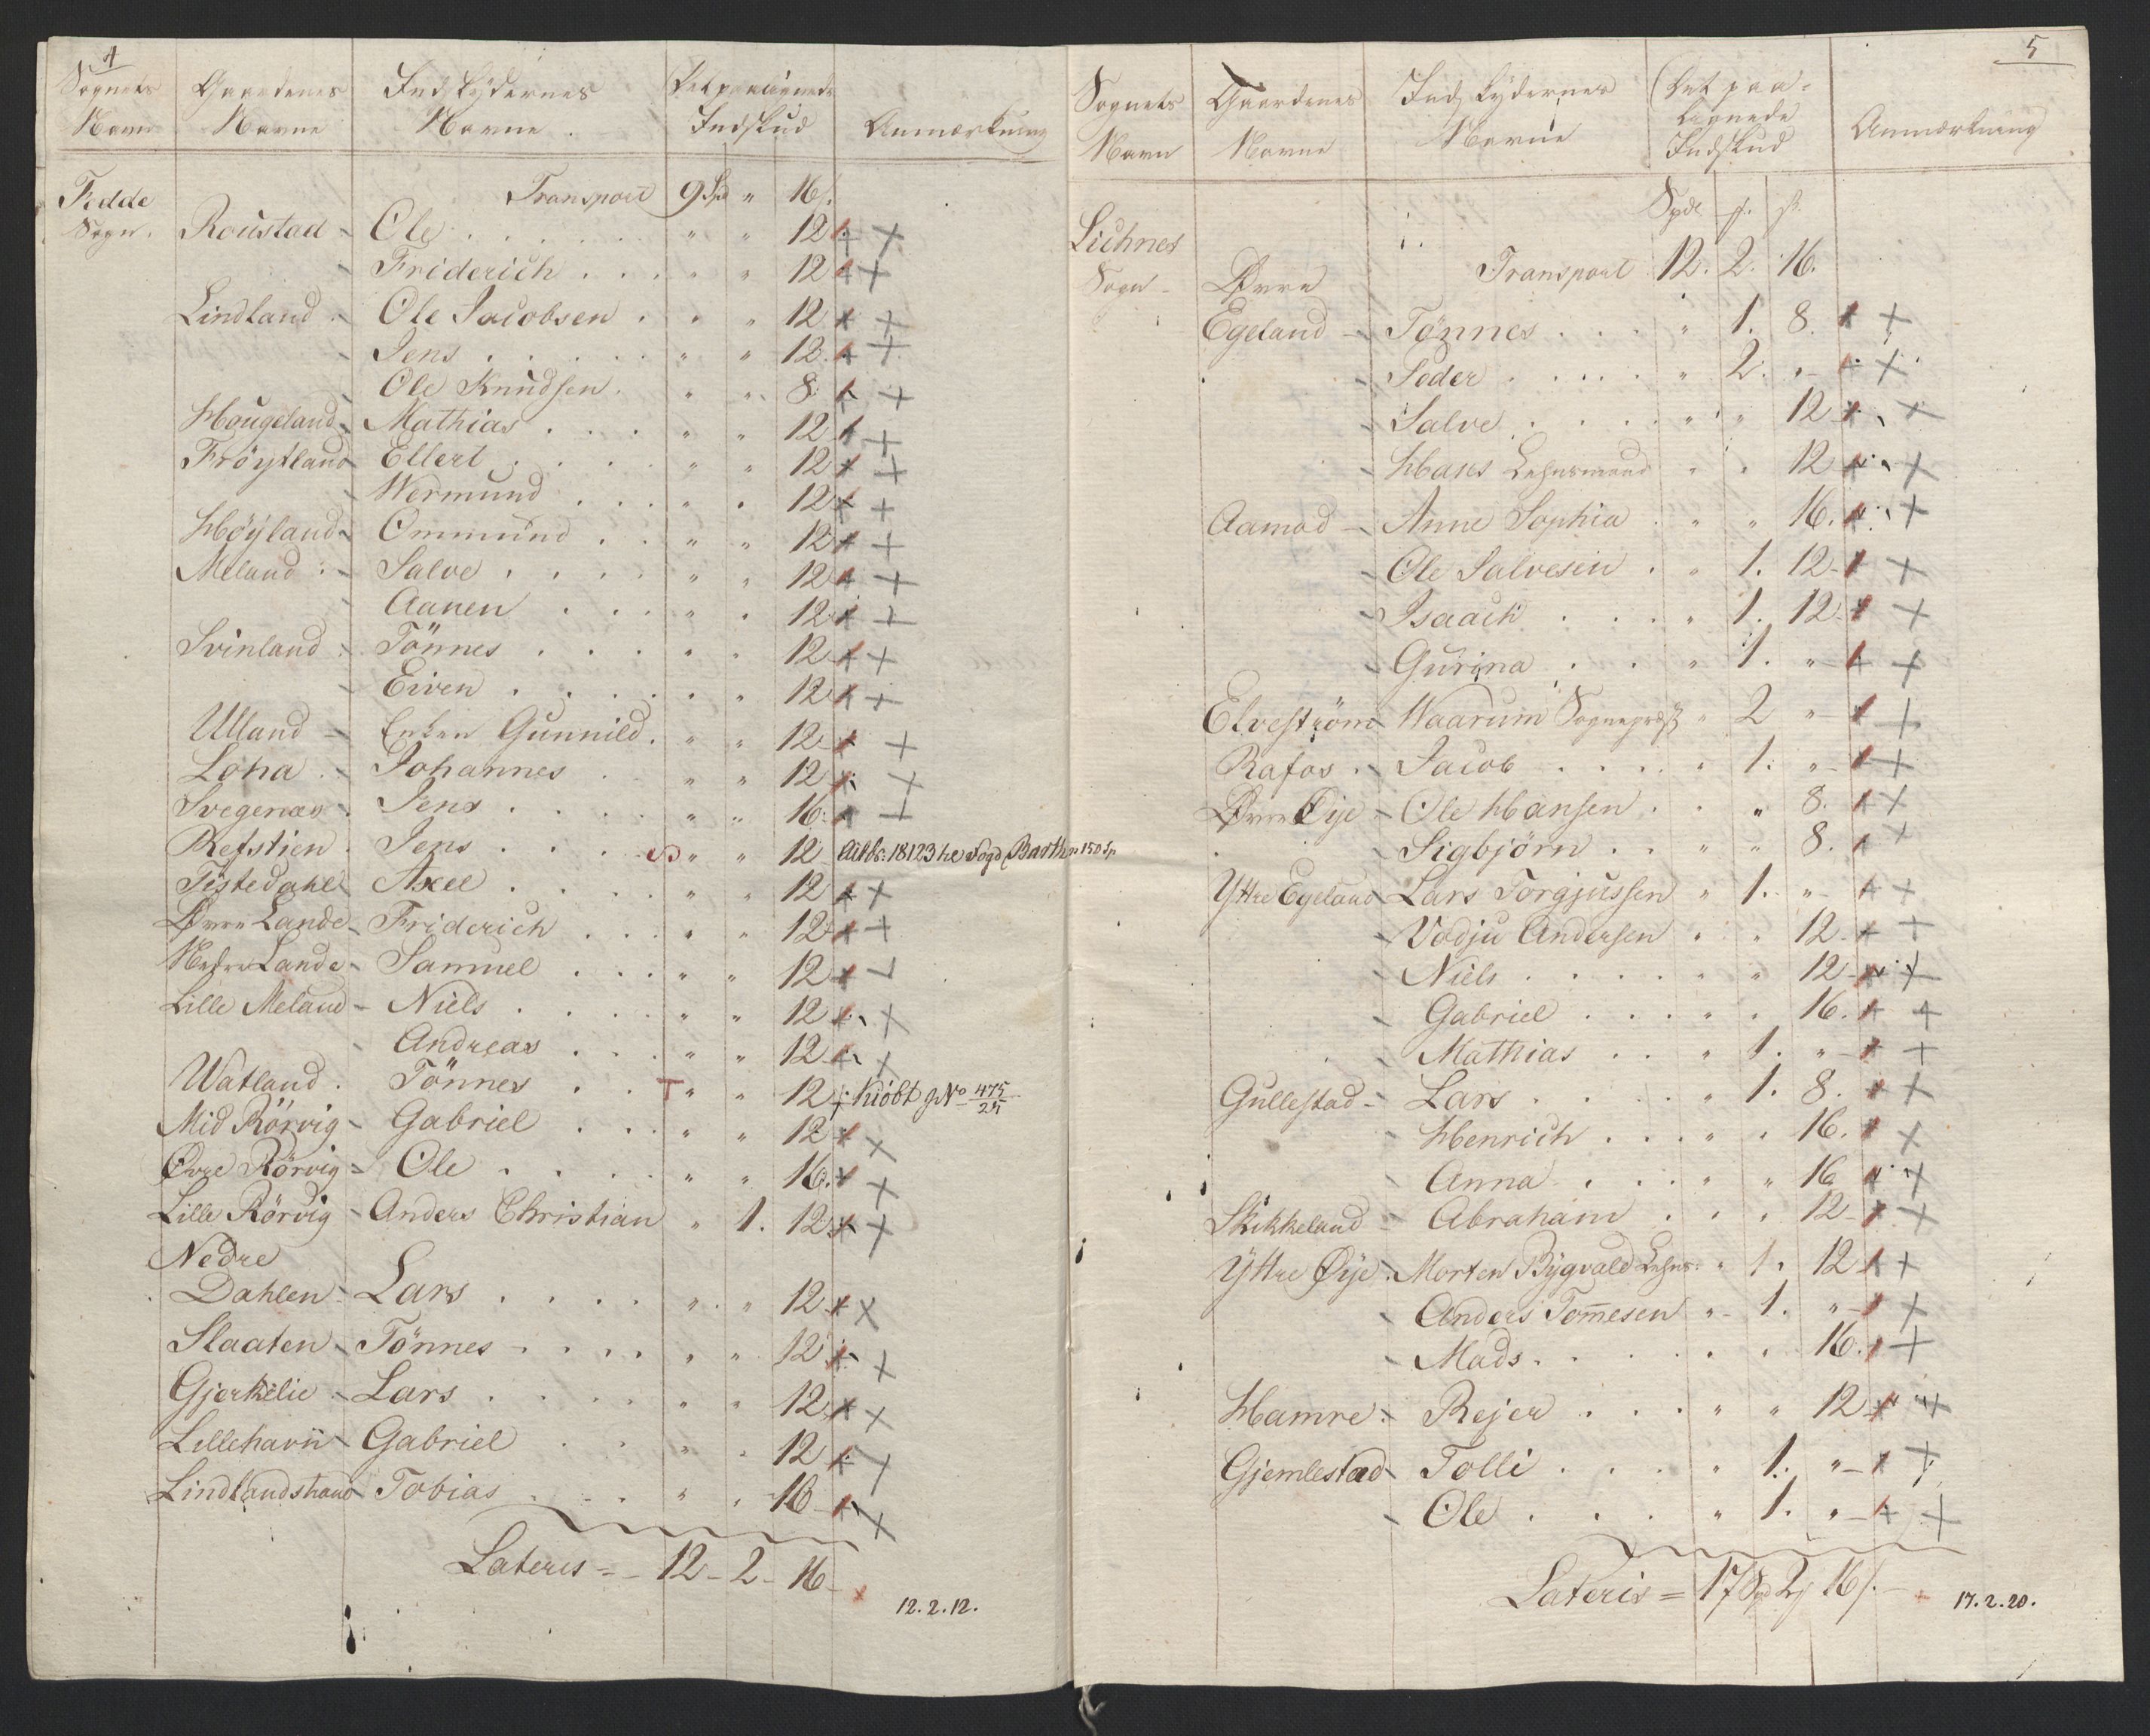 4
Sognets Navn | Gaardenes Navne | Indskydernes Navne | Det paalignede Indskud | Anmærkning
Fedde Sogn. | Transport 9 Spd " 16 s.
Roustad - Ole . . . " " 12
- Friderich . . . " " 12
Lindland - Ole Jacobsen . . " 12
- Jens . . . " " 12.
- Ole Knudsen . " " 8.
Hougeland - Mathias . . . " " 12
Fröytland - Ellert . . . " " 12
- Wermund . . . " " 12
Höyland - Ommund . . " " 12
Meland - Salve . . . " " 12
- Aanen . . . " " 12
Svinland - Tönnes . . . " " 12
- Eiven . . . " " 12
Ulland - Enken Gunnild . " " 12
Loha - Johannes . " " 12
Svegenæs . Jens . . . " " 16.
Refstien . Jens . . . " " 12
Tistedahl Axel . . . " " 12
Øvre Lande - Friderich . . . " " 12
Nedre Lande - Samuel . . . " " 12
Lille Meland - Niels . . . " " 12
- Andreas . . . " " 12
Watland . Tönnes . . T " " 12 kiöbt No 475/25
Mid Rörvig - Gabriel . . . " " 12
Øvre Rörvig - Ole . . . " " 16.
Lille Rörvig - Anders Christian " 1. 12
Nedre
Dahlen - Lars . . . . " " 12
Slaaten - Tönnes - . . . . " " 12
Gjerkelie - Lars . . . . " " 12
Lillehavn - Gabriel . . . " " 12
Lindlandshavn Tobias . . . " " 16
Lateris = - 12 - 2 - 16 -
12. 2. 12.
5
Sognets Navn | Gaardenes Navne | Indskydernes Navne | Det paalignede Indskud | Anmærkning
Spd. | s.
Lichnes Sogn - | Transport 12. 2. 16.
Øvre
Egeland - Tönnes . . . " 1. 8.
- Peder . . . . " 2. " -
- Salve . . . . " " 12
- Hans Lehnsmand " " 12
Aamod - Anne Sophia . " " 16.
- Ole Salvesen . " 1. 12
- Isaach . . . " 1. 12.
- Gurina . . . " 1. " -
Elveström Waarum Sognepræst " 2 " -
Rafos . - Jacob . . . . " 1. " -
Øvre Øye - Ole Hansen . . " 8.
- Sigbjörn . . " " 8.
Yttre Egeland Lars Torgjussen " 1. " -
- Vodju Andersen . " 12
- Niels . . . . " " 12
- Gabriel . . . " " 16.
- Mathias . . " 1. " -
Gullestad - Lars . . . . " 1. 8.
- Henrich . . . " " 16.
- Anna . . . " " 16
Skikkeland - Abraham . . . " 12
Yttre Øye . Morten Bygvald Lehns. " 1. 12
- Anders Tom̅esen " 1. " -
- Mads . . . . . " 16.
Hamre - Rejer . . . " " 12
Gjemlestad - Tolli . . . . " 1. " -
- Ole . . . . " 1. " -
Lateris = 17 Spd 2 16 s.
17. 2. 20.